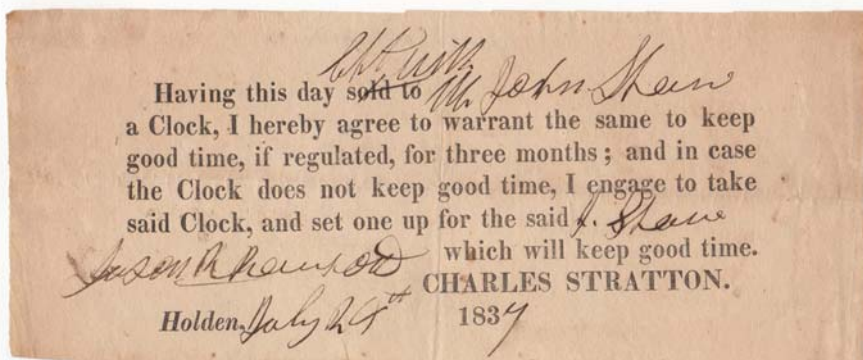 left with
Having this day sold to Mr John Shaw
a Clock, I hereby agree to warrant the same to keep
good time, if regulated, for three months; and in case
the Clock does not keep good time, I engage to take
said Clock, and set one up for the said J. Shaw
which will keep good time.
CHARLES STRATTON.
Holden, July 24th 1837